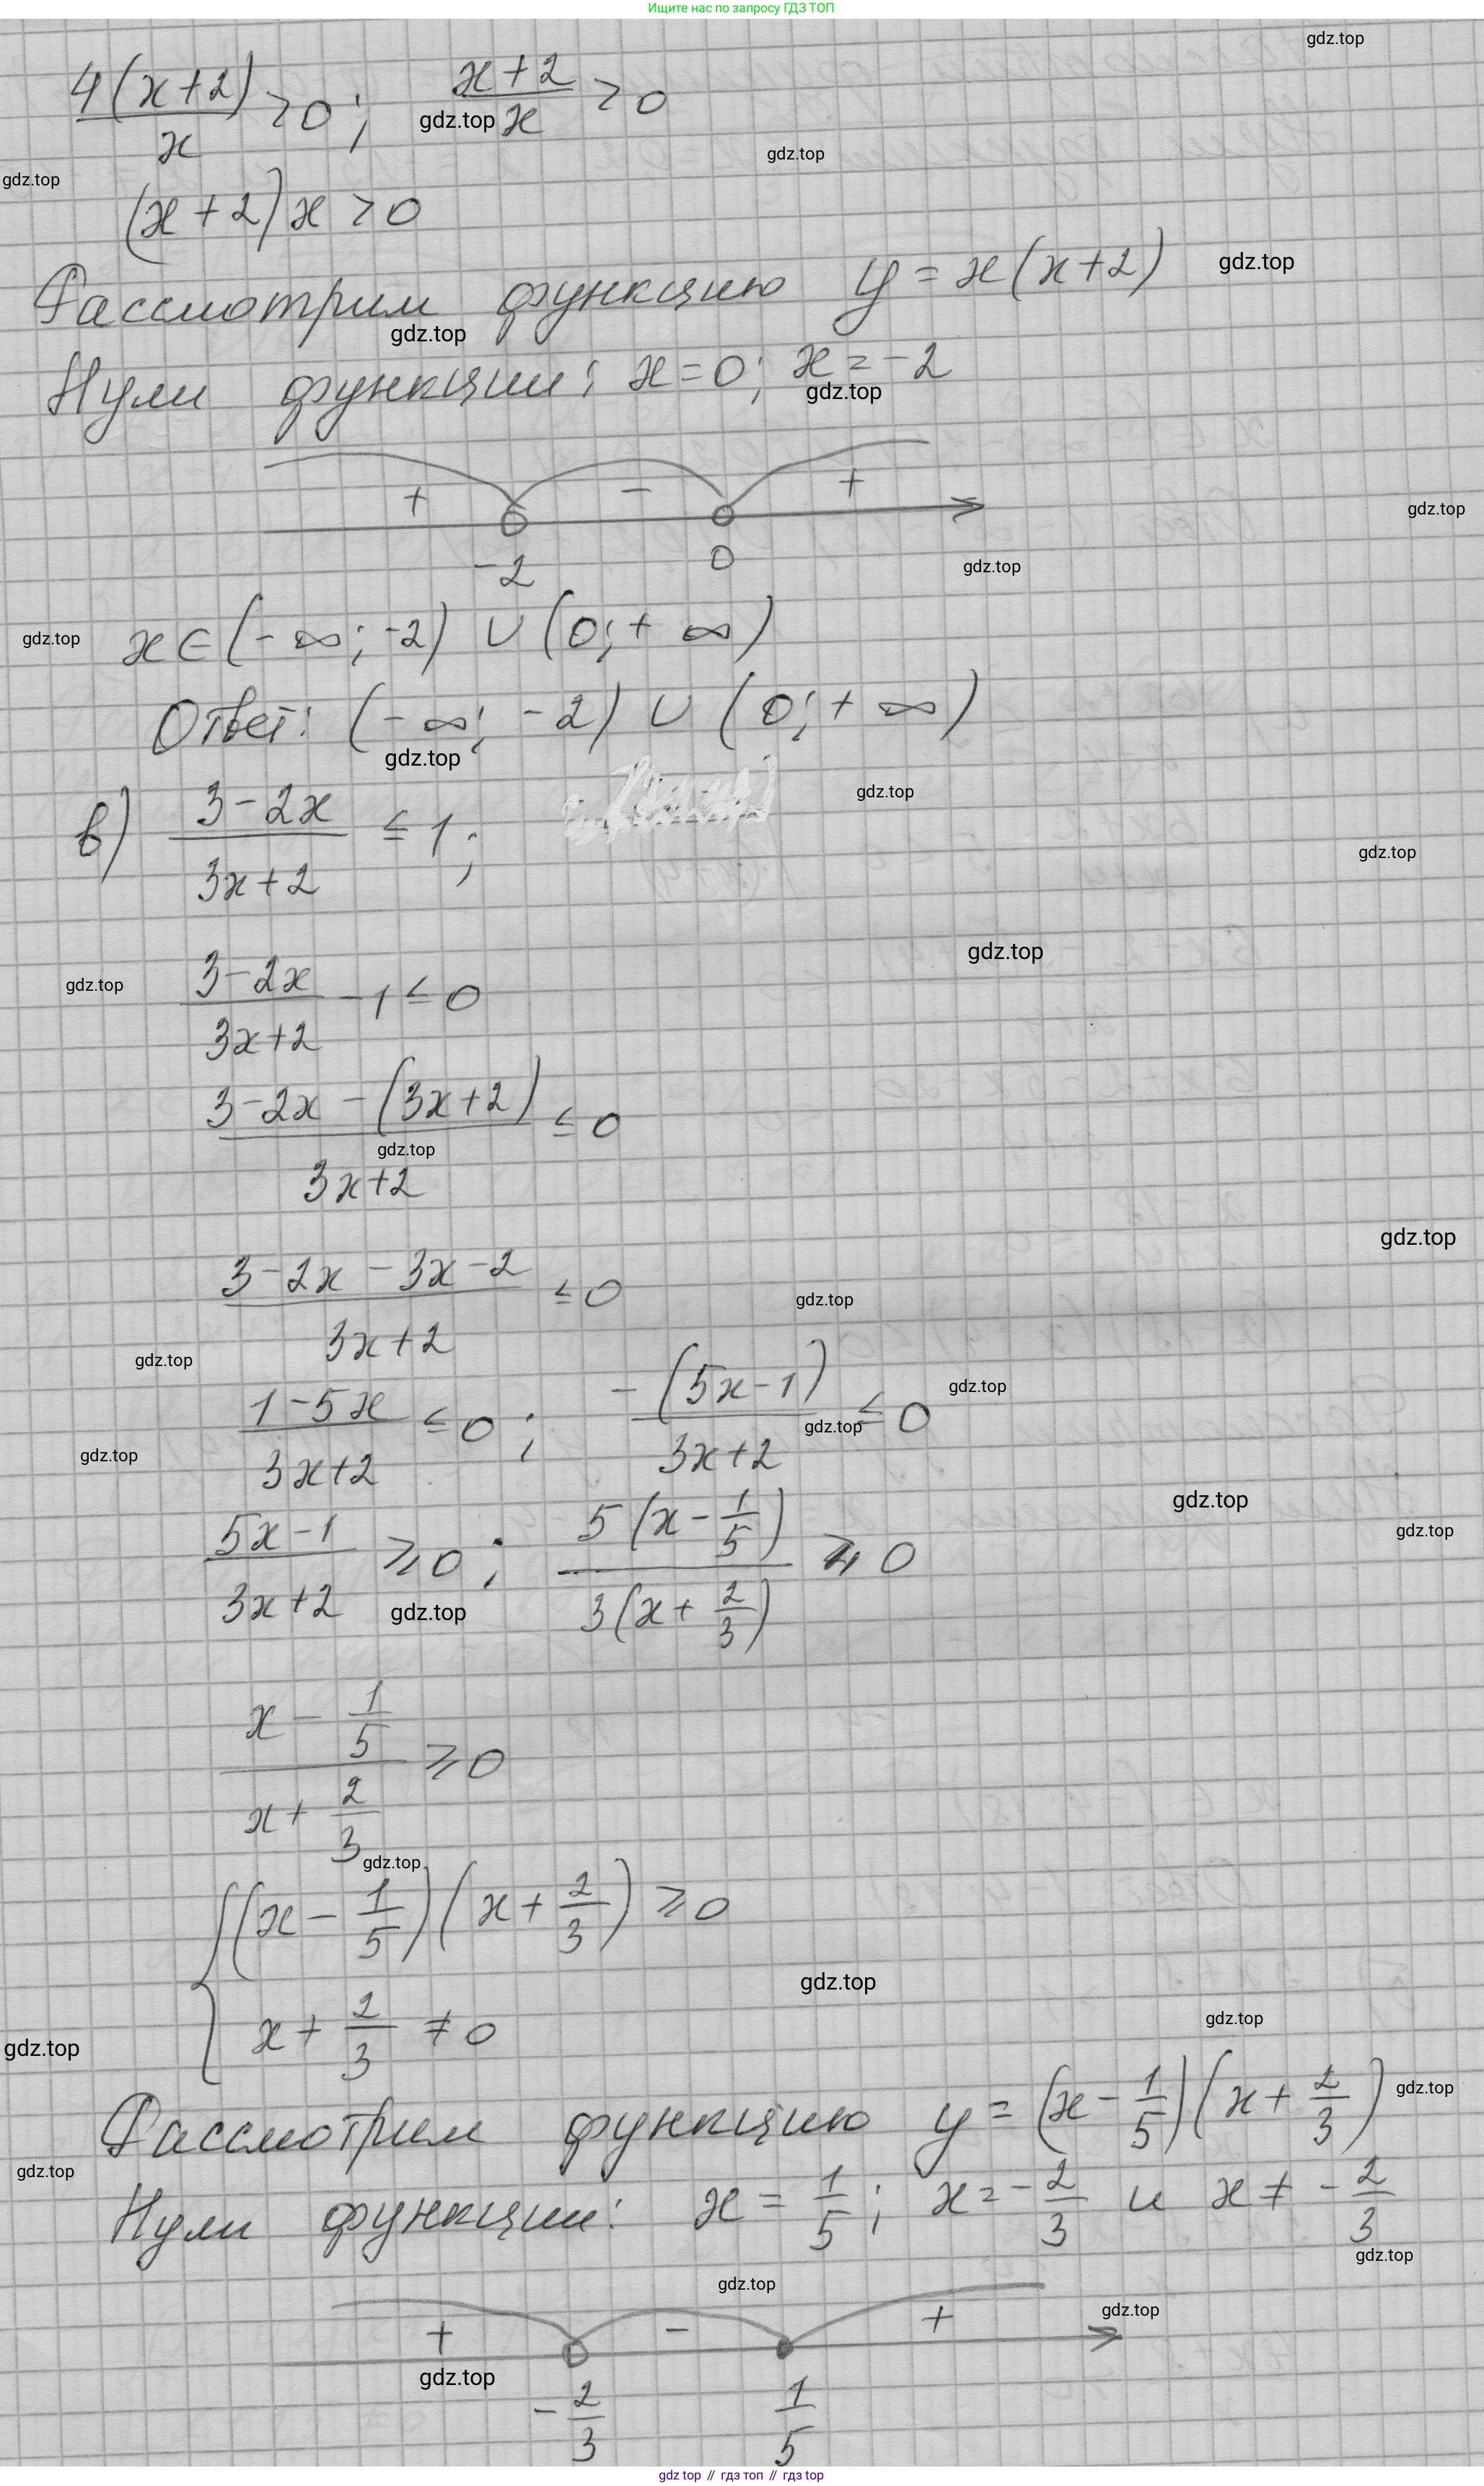 Ищите нас по запросу ГДЗ ТОП
gdz.top
4(x+2)/x > 0; (x+2)/x > 0
gdz.top
gdz.top
gdz.top
(x+2)x > 0
Рассмотрим функцию y = x(x+2)
gdz.top
gdz.top
Нули функции: x=0; x=-2
gdz.top
+ - +
gdz.top
-2 0
gdz.top
gdz.top
x∈(-∞; -2) ∪ (0; +∞)
Ответ: (-∞; -2) ∪ (0; +∞)
gdz.top
gdz.top
в) (3-2x)/(3x+2) ≤ 1;
gdz.top
gdz.top
gdz.top
(3-2x)/(3x+2) - 1 ≤ 0
(3-2x-(3x+2))/(3x+2) ≤ 0
gdz.top
gdz.top
(3-2x-3x-2)/(3x+2) ≤ 0
gdz.top
gdz.top
(1-5x)/(3x+2) ≤ 0; -(5x-1)/(3x+2) ≤ 0
gdz.top
gdz.top
gdz.top
gdz.top
gdz.top
(5x-1)/(3x+2) ≥ 0; 5(x-1/5)/3(x+2/3) ≥ 0
gdz.top
(x-1/5)/(x+2/3) ≥ 0
gdz.top
{(x-1/5)(x+2/3) ≥ 0
x+2/3 ≠ 0
gdz.top
gdz.top
gdz.top
Рассмотрим функцию y = (x-1/5)(x+2/3)
gdz.top
gdz.top
Нули функции: x = 1/5; x = -2/3 и x ≠ -2/3
gdz.top
gdz.top
gdz.top
+ - +
gdz.top
-2/3 1/5
gdz top // гдз топ // гдз top